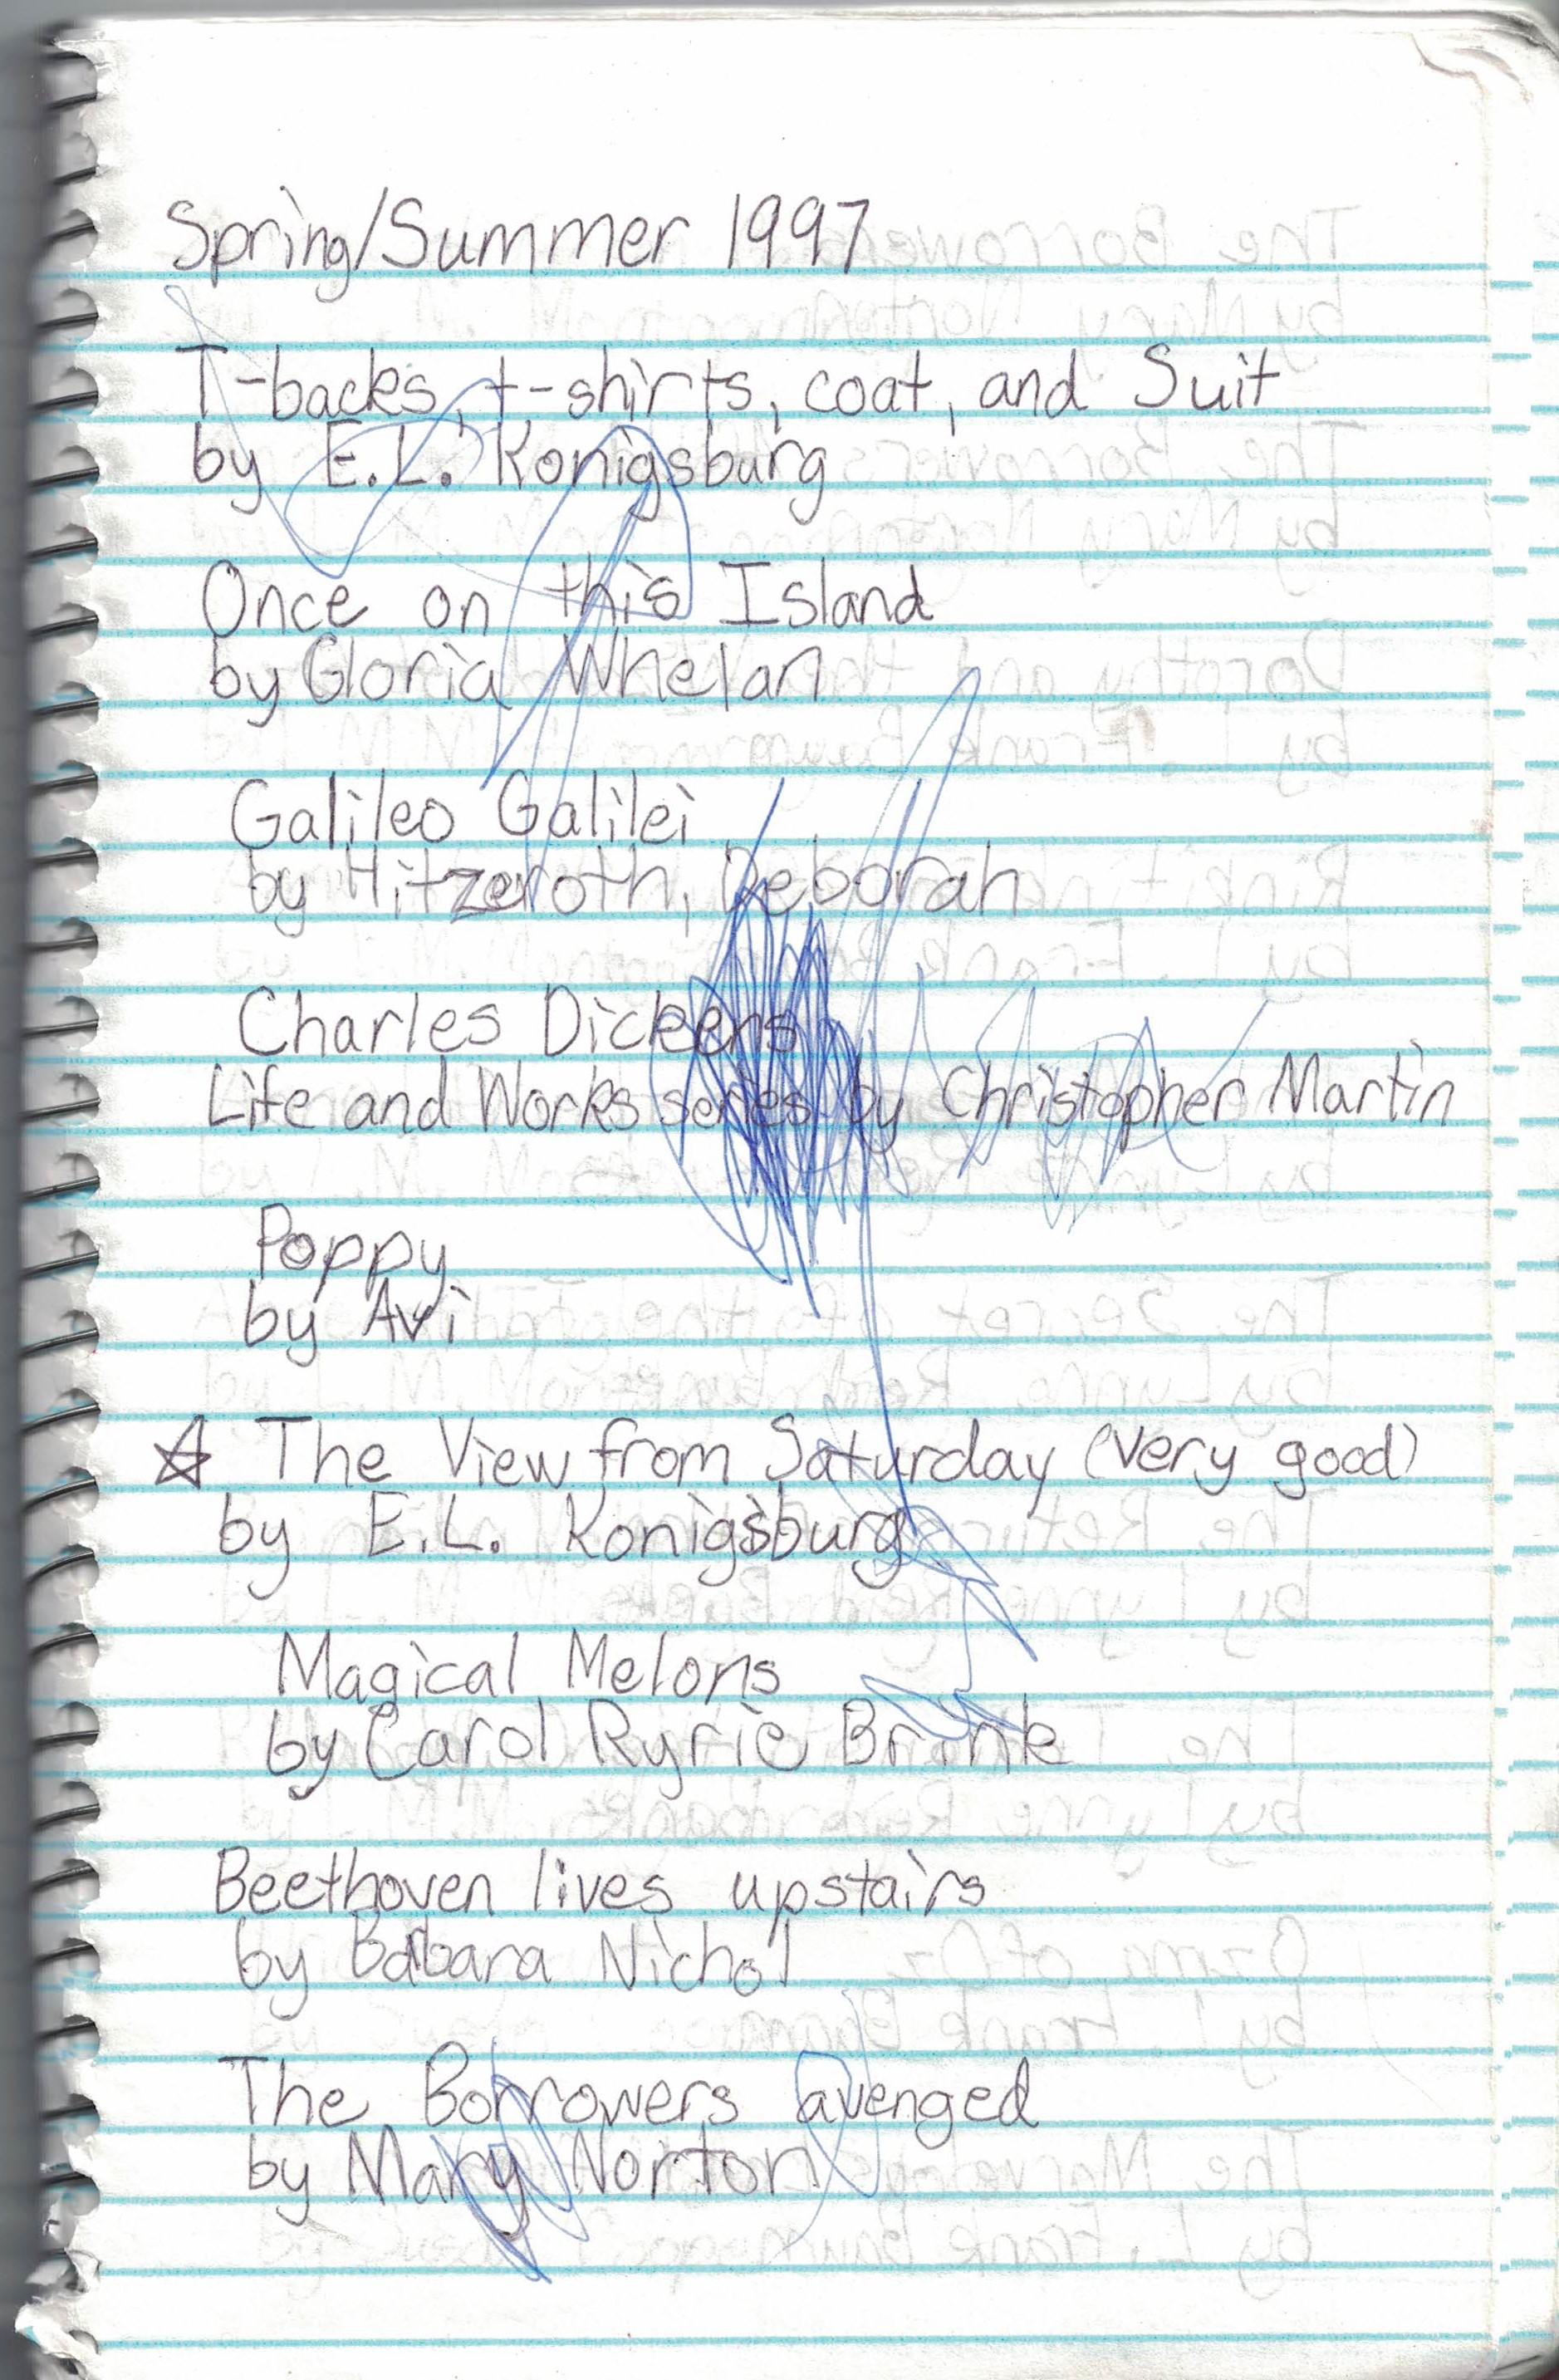 Spring/Summer 1997
T-backs, t-shirts, coat, and Suit
by E.L. Konigsburg
Once on this Island
by Gloria Whelan
Galileo Galilei
by Hitzeroth, Deborah
Charles Dickens
Life and Works series by Christopher Martin
Poppy
by Avi
☆ The View from Saturday (very good)
by E.L. Konigsburg
Magical Melons
by Carol Ryrie Brink
Beethoven lives upstairs
by Barbara Nichol
The Borrowers avenged
by Mary Norton